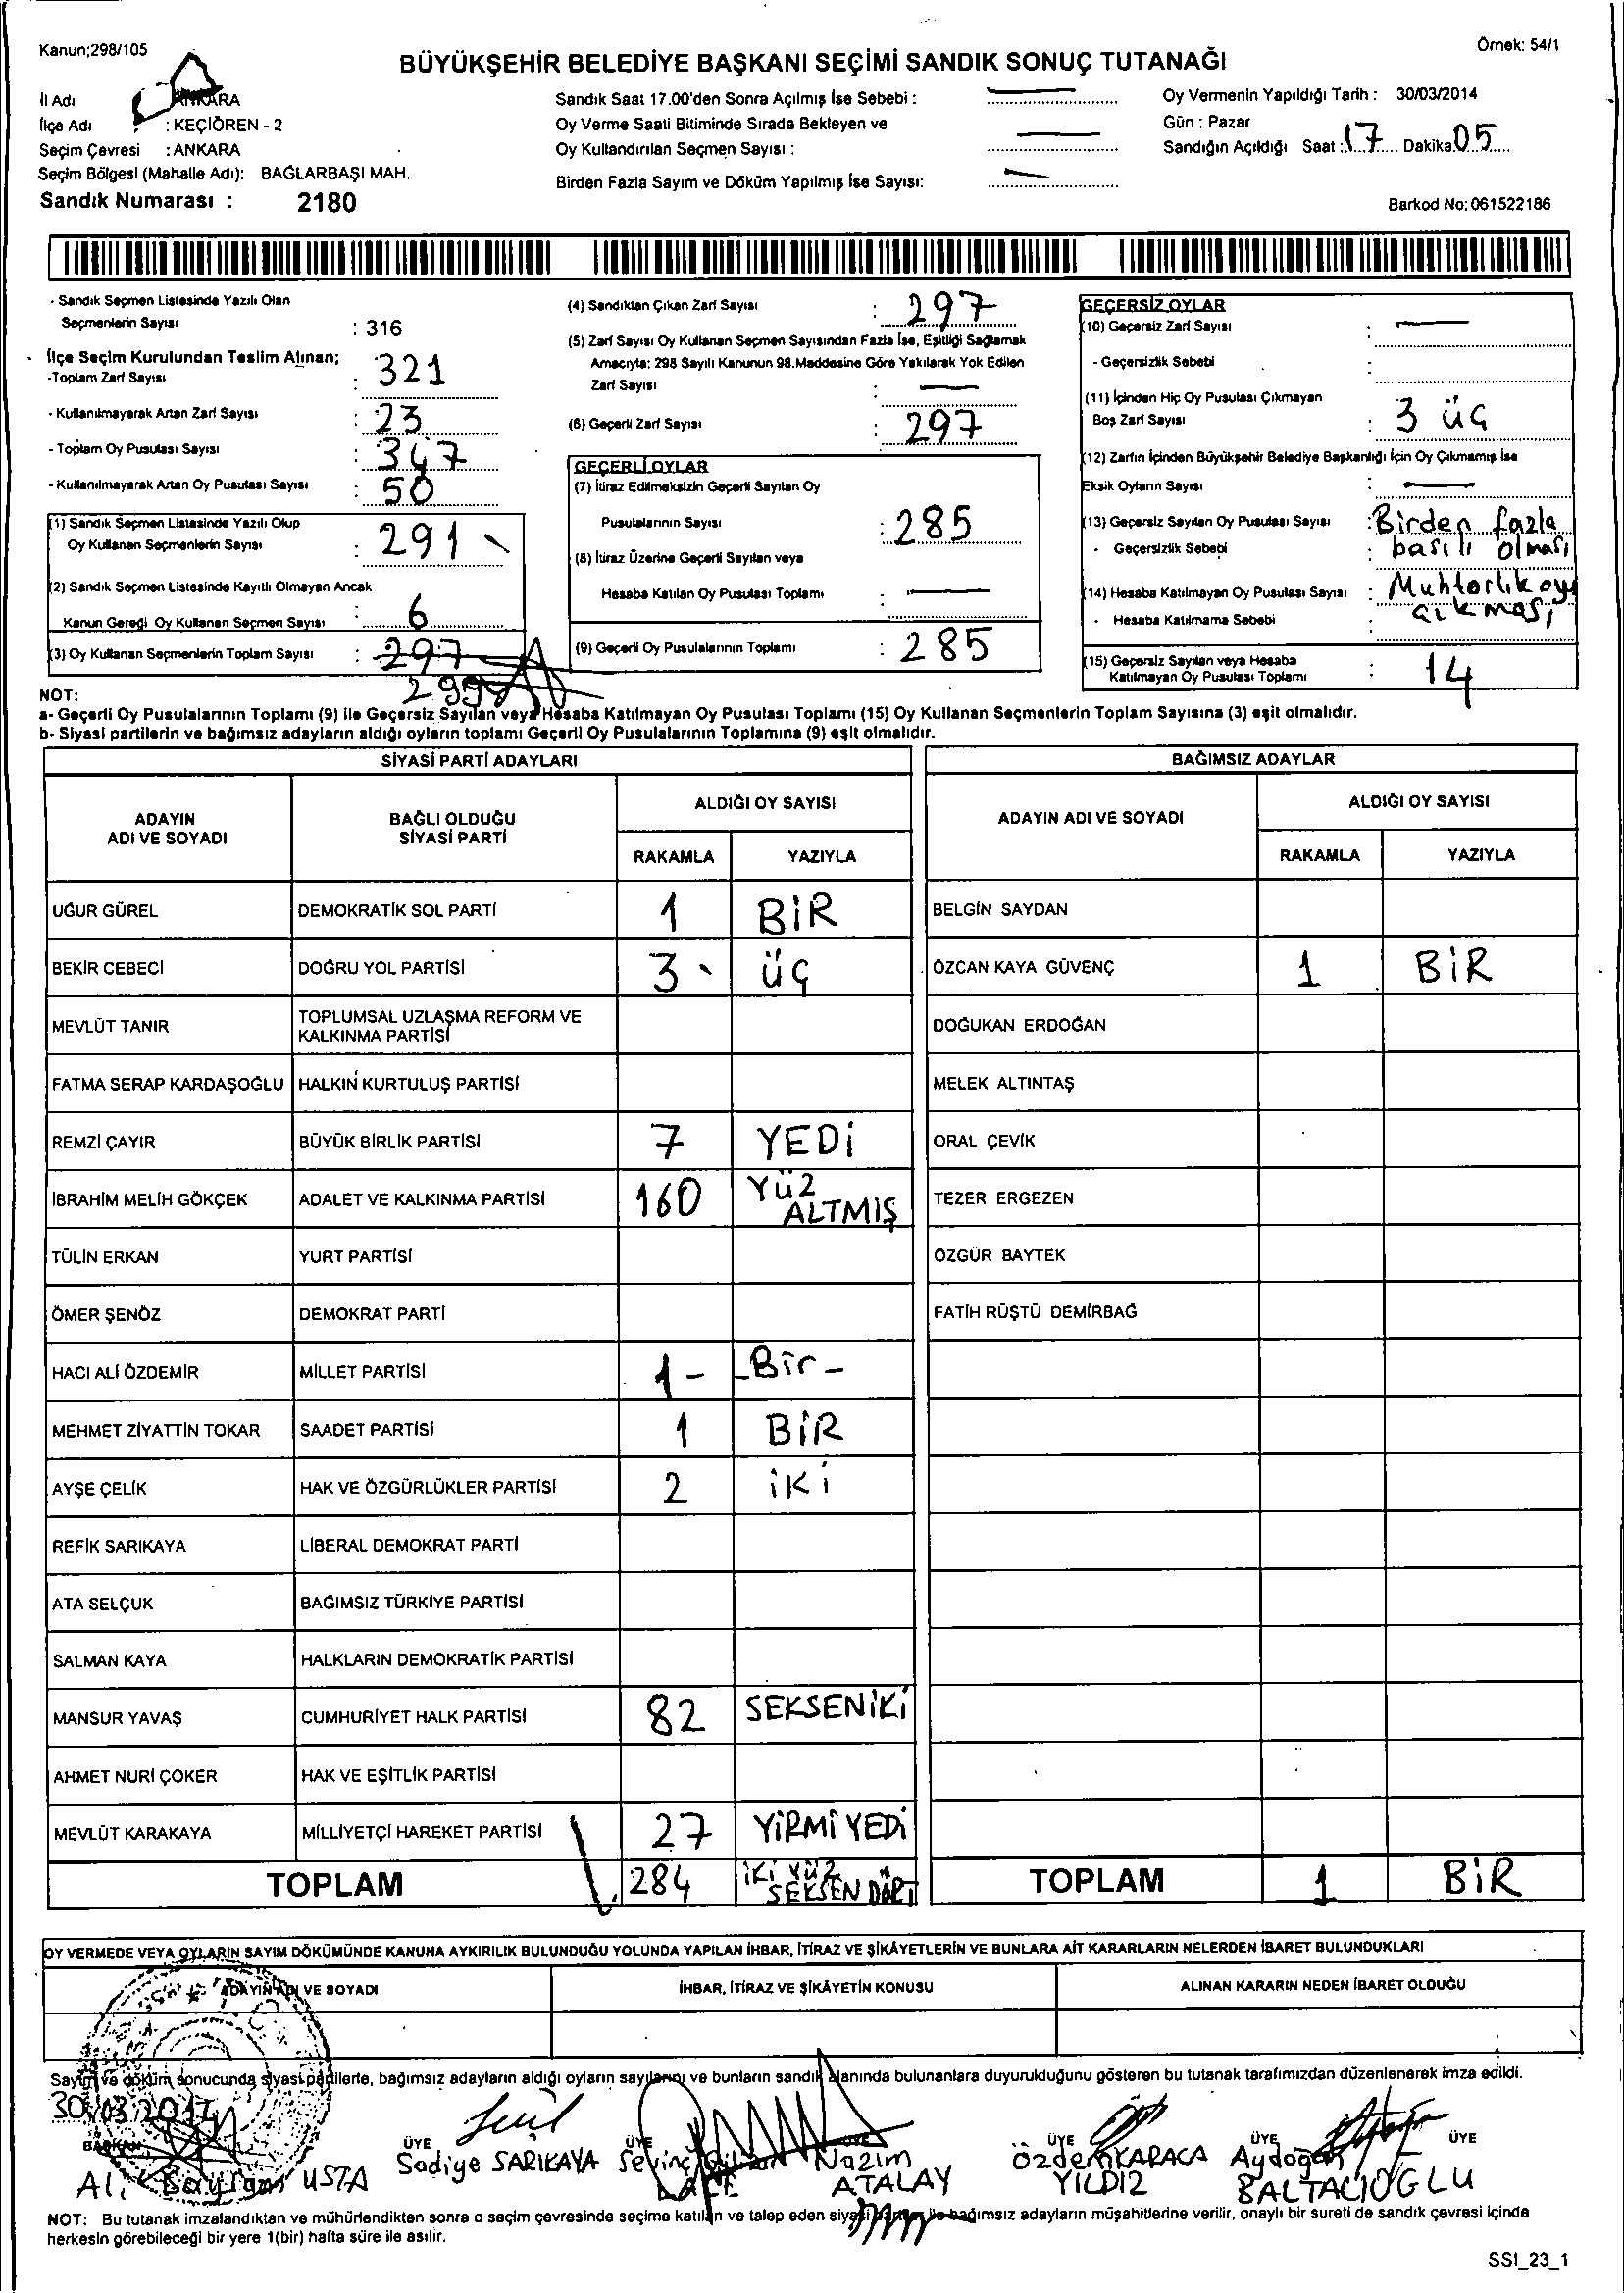 Kanun;298/105
Örnek: 54/1
BÜYÜKŞEHİR BELEDİYE BAŞKANI SEÇİMİ SANDIK SONUÇ TUTANAĞI
İl Adı ANKARA
İlçe Adı : KEÇİÖREN - 2
Seçim Çevresi : ANKARA
Seçim Bölgesi (Mahalle Adı): BAĞLARBAŞI MAH.
Sandık Numarası : 2180
Sandık Saat 17.00'den Sonra Açılmış İse Sebebi :
Oy Verme Saati Bitiminde Sırada Bekleyen ve
Oy Kullandırılan Seçmen Sayısı :
Birden Fazla Sayım ve Döküm Yapılmış İse Sayısı:
Oy Vermenin Yapıldığı Tarih : 30/03/2014
Gün : Pazar
Sandığın Açıldığı Saat : 17 Dakika 05
Barkod No: 061522186
- Sandık Seçmen Listesinde Yazılı Olan
Seçmenlerin Sayısı : 316
İlçe Seçim Kurulundan Teslim Alınan;
-Toplam Zarf Sayısı : 321
- Kullanılmayarak Artan Zarf Sayısı : 23
- Toplam Oy Pusulası Sayısı : 347
- Kullanılmayarak Artan Oy Pusulası Sayısı : 50
(1) Sandık Seçmen Listesinde Yazılı Olup
Oy Kullanan Seçmenlerin Sayısı : 291
(2) Sandık Seçmen Listesinde Kayıtlı Olmayan Ancak
Kanun Gereği Oy Kullanan Seçmen Sayısı : 6
(3) Oy Kullanan Seçmenlerin Toplam Sayısı : 297
(4) Sandıktan Çıkan Zarf Sayısı : 297
(5) Zarf Sayısı Oy Kullanan Seçmen Sayısından Fazla İse, Eşitliği Sağlamak
Amacıyla: 298 Sayılı Kanunun 98.Maddesine Göre Yakılarak Yok Edilen
Zarf Sayısı :
(6) Geçerli Zarf Sayısı : 297
GEÇERLİ OYLAR
(7) İtiraz Edilmeksizin Geçerli Sayılan Oy
Pusulalarının Sayısı : 285
(8) İtiraz Üzerine Geçerli Sayılan veya
Hesaba Katılan Oy Pusulası Toplamı :
(9) Geçerli Oy Pusulalarının Toplamı : 285
GEÇERSİZ OYLAR
(10) Geçersiz Zarf Sayısı :
- Geçersizlik Sebebi :
(11) İçinden Hiç Oy Pusulası Çıkmayan
Boş Zarf Sayısı : 3 üç
(12) Zarfın İçinden Büyükşehir Belediye Başkanlığı İçin Oy Çıkmamış İse
Eksik Oyların Sayısı :
(13) Geçersiz Sayılan Oy Pusulası Sayısı : Birden fazla
- Geçersizlik Sebebi : basılı olması
(14) Hesaba Katılmayan Oy Pusulası Sayısı : Muhtarlık oyu
- Hesaba Katılmama Sebebi : çıkması
(15) Geçersiz Sayılan veya Hesaba
Katılmayan Oy Pusulası Toplamı : 14
NOT:
a- Geçerli Oy Pusulalarının Toplamı (9) ile Geçersiz Sayılan veya Hesaba Katılmayan Oy Pusulası Toplamı (15) Oy Kullanan Seçmenlerin Toplam Sayısına (3) eşit olmalıdır.
b- Siyasi partilerin ve bağımsız adayların aldığı oyların toplamı Geçerli Oy Pusulalarının Toplamına (9) eşit olmalıdır.
SİYASİ PARTİ ADAYLARI
ADAYIN ADI VE SOYADI
BAĞLI OLDUĞU SİYASİ PARTİ
ALDIĞI OY SAYISI
RAKAMLA YAZIYLA
UĞUR GÜREL DEMOKRATİK SOL PARTİ 1 BİR
BEKİR CEBECİ DOĞRU YOL PARTİSİ 3 üç
MEVLÜT TANIR TOPLUMSAL UZLAŞMA REFORM VE
KALKINMA PARTİSİ
FATMA SERAP KARDAŞOĞLU HALKIN KURTULUŞ PARTİSİ
REMZİ ÇAYIR BÜYÜK BİRLİK PARTİSİ 7 YEDİ
İBRAHİM MELİH GÖKÇEK ADALET VE KALKINMA PARTİSİ 160 YÜZ ALTMIŞ
TÜLİN ERKAN YURT PARTİSİ
ÖMER ŞENÖZ DEMOKRAT PARTİ
HACI ALİ ÖZDEMİR MİLLET PARTİSİ 1 - - Bir -
MEHMET ZİYATTİN TOKAR SAADET PARTİSİ 1 BİR
AYŞE ÇELİK HAK VE ÖZGÜRLÜKLER PARTİSİ 2 iKi
REFİK SARIKAYA LİBERAL DEMOKRAT PARTİ
ATA SELÇUK BAĞIMSIZ TÜRKİYE PARTİSİ
SALMAN KAYA HALKLARIN DEMOKRATİK PARTİSİ
MANSUR YAVAŞ CUMHURİYET HALK PARTİSİ 82 SEKSENİKİ
AHMET NURİ ÇOKER HAK VE EŞİTLİK PARTİSİ
MEVLÜT KARAKAYA MİLLİYETÇİ HAREKET PARTİSİ 27 YİRMİYEDİ
TOPLAM 284 İKİ YÜZ SEKSEN DÖRT
BAĞIMSIZ ADAYLAR
ADAYIN ADI VE SOYADI
ALDIĞI OY SAYISI
RAKAMLA YAZIYLA
BELGİN SAYDAN
ÖZCAN KAYA GÜVENÇ 1 BİR
DOĞUKAN ERDOĞAN
MELEK ALTINTAŞ
ORAL ÇEVİK
TEZER ERGEZEN
ÖZGÜR BAYTEK
FATİH RÜŞTÜ DEMİRBAĞ
TOPLAM 1 BİR
OY VERMEDE VEYA OYLARIN SAYIM DÖKÜMÜNDE KANUNA AYKIRILIK BULUNDUĞU YOLUNDA YAPILAN İHBAR, İTİRAZ VE ŞİKÂYETLERİN VE BUNLARA AİT KARARLARIN NELERDEN İBARET BULUNDUKLARI
ADAYIN ADI VE SOYADI
İHBAR, İTİRAZ VE ŞİKÂYETİN KONUSU
ALINAN KARARIN NEDEN İBARET OLDUĞU
Sayım ve döküm sonucunda siyasi partilerle, bağımsız adayların aldığı oyların sayılarını ve bunların sandık alanında bulunanlara duyurulduğunu gösteren bu tutanak tarafımızdan düzenlenerek imza edildi.
30/03/2014
BAŞKAN ÜYE ÜYE ÜYE ÜYE ÜYE ÜYE
Ali Bayram USTA
Sadiye SARIKAYA
Sevinç
Nazım ATALAY
Özdem KARACA YILDIZ
Aydoğan BALTACIOĞLU
NOT: Bu tutanak imzalandıktan ve mühürlendikten sonra o seçim çevresinde seçime katılan ve talep eden siyasi partiler ile bağımsız adayların müşahitlerine verilir, onaylı bir sureti de sandık çevresi içinde
herkesin görebileceği bir yere 1(bir) hafta süre ile asılır.
SSI_23_1